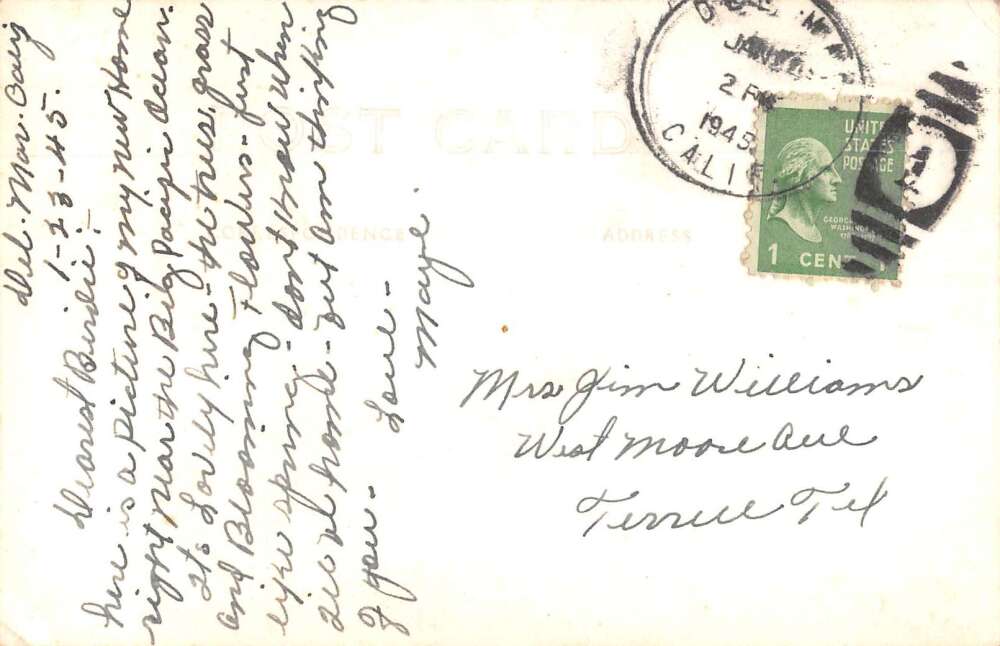 Del. Mar. Calif
1-23-45.
Dearest Birdie:
here is a picture of my new Home
right near the Big Pacific Ocean.
its Lovely here - the trees, grass
and Blooming Flowers - just
like spring - dont know when
Ill be home - but am thinking
of you -
Love -
Maye.
POST CARD
CORRESPONDENCE
ADDRESS
JAN
2 PM
1945
CALIF.
UNITED
STATES
POSTAGE
GEORGE
WASHINGTON
1 CENT 1
Mrs Jim Williams
West Moore Ave
Terrell Tex